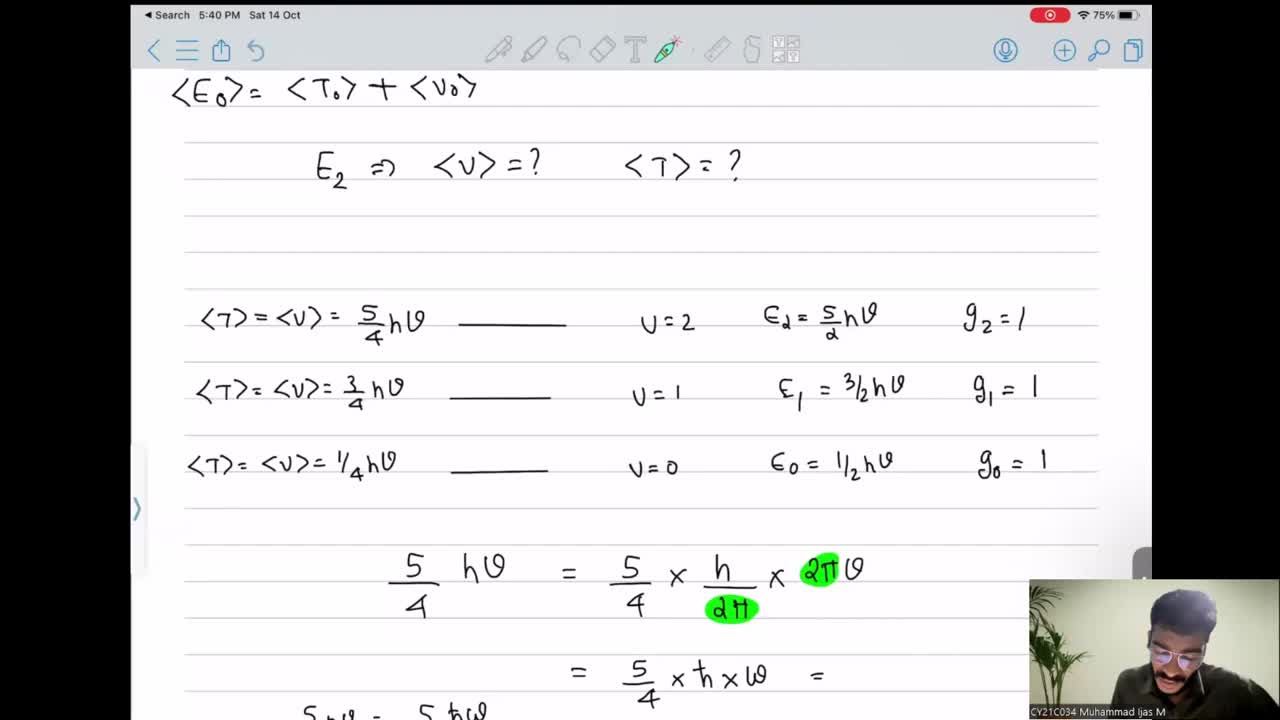 ◀ Search 5:40 PM Sat 14 Oct 75%
<E₀> = <T₀> + <V₀>
E₂ ⇒ <V> = ? <T> = ?
<T> = <V> = 5/4 hν v = 2 E₂ = 5/2 hν g₂ = 1
<T> = <V> = 3/4 hν v = 1 E₁ = 3/2 hν g₁ = 1
<T> = <V> = 1/4 hν v = 0 E₀ = 1/2 hν g₀ = 1
5/4 hν = 5/4 × h/2π × 2πν
= 5/4 × ħ × ω =
CY21C034 Muhammad Ijas M